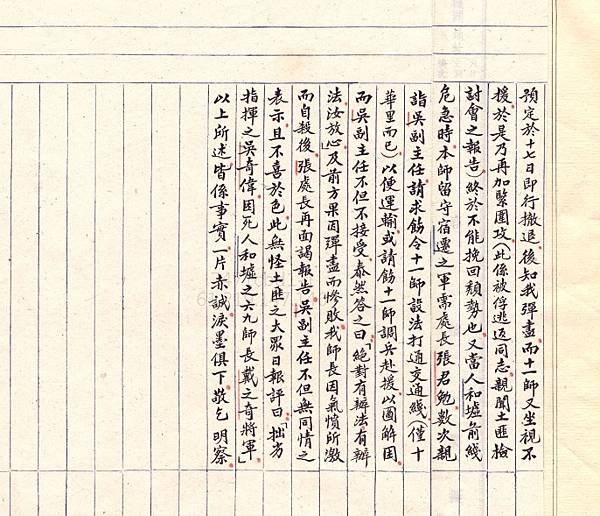 預定於十七日即行撤退、後知我彈盡而十一師又坐視不
援、於是乃再加緊圍攻、(此係被俘逃返同志、親聞土匪檢
討會之報告)終於不能挽回頹勢也、又當人和墟前綫
危急時、本師留守宿遷之軍需處長張君勉、數次親
詣吳副主任請求飭令十一師設法打通交通綫(僅十
華里而已)以便運輸、或請飭十一師調兵赴援、以圖解困、
而吳副主任不但不接受、泰然答之曰「絕對有辦法有辦
法汝放心」及前方果因彈盡而慘敗、我師長因氣憤所激
而自殺後、張處長再面謁報告、吳副主任不但無同情之
表示、且不喜於色、此無怪土匪之大眾日報評曰、「拙劣
指揮之吳奇偉、困死人和墟之六九師長戴之奇將軍」
以上所述、皆係事實、一片赤誠、淚墨俱下、敬乞 明察